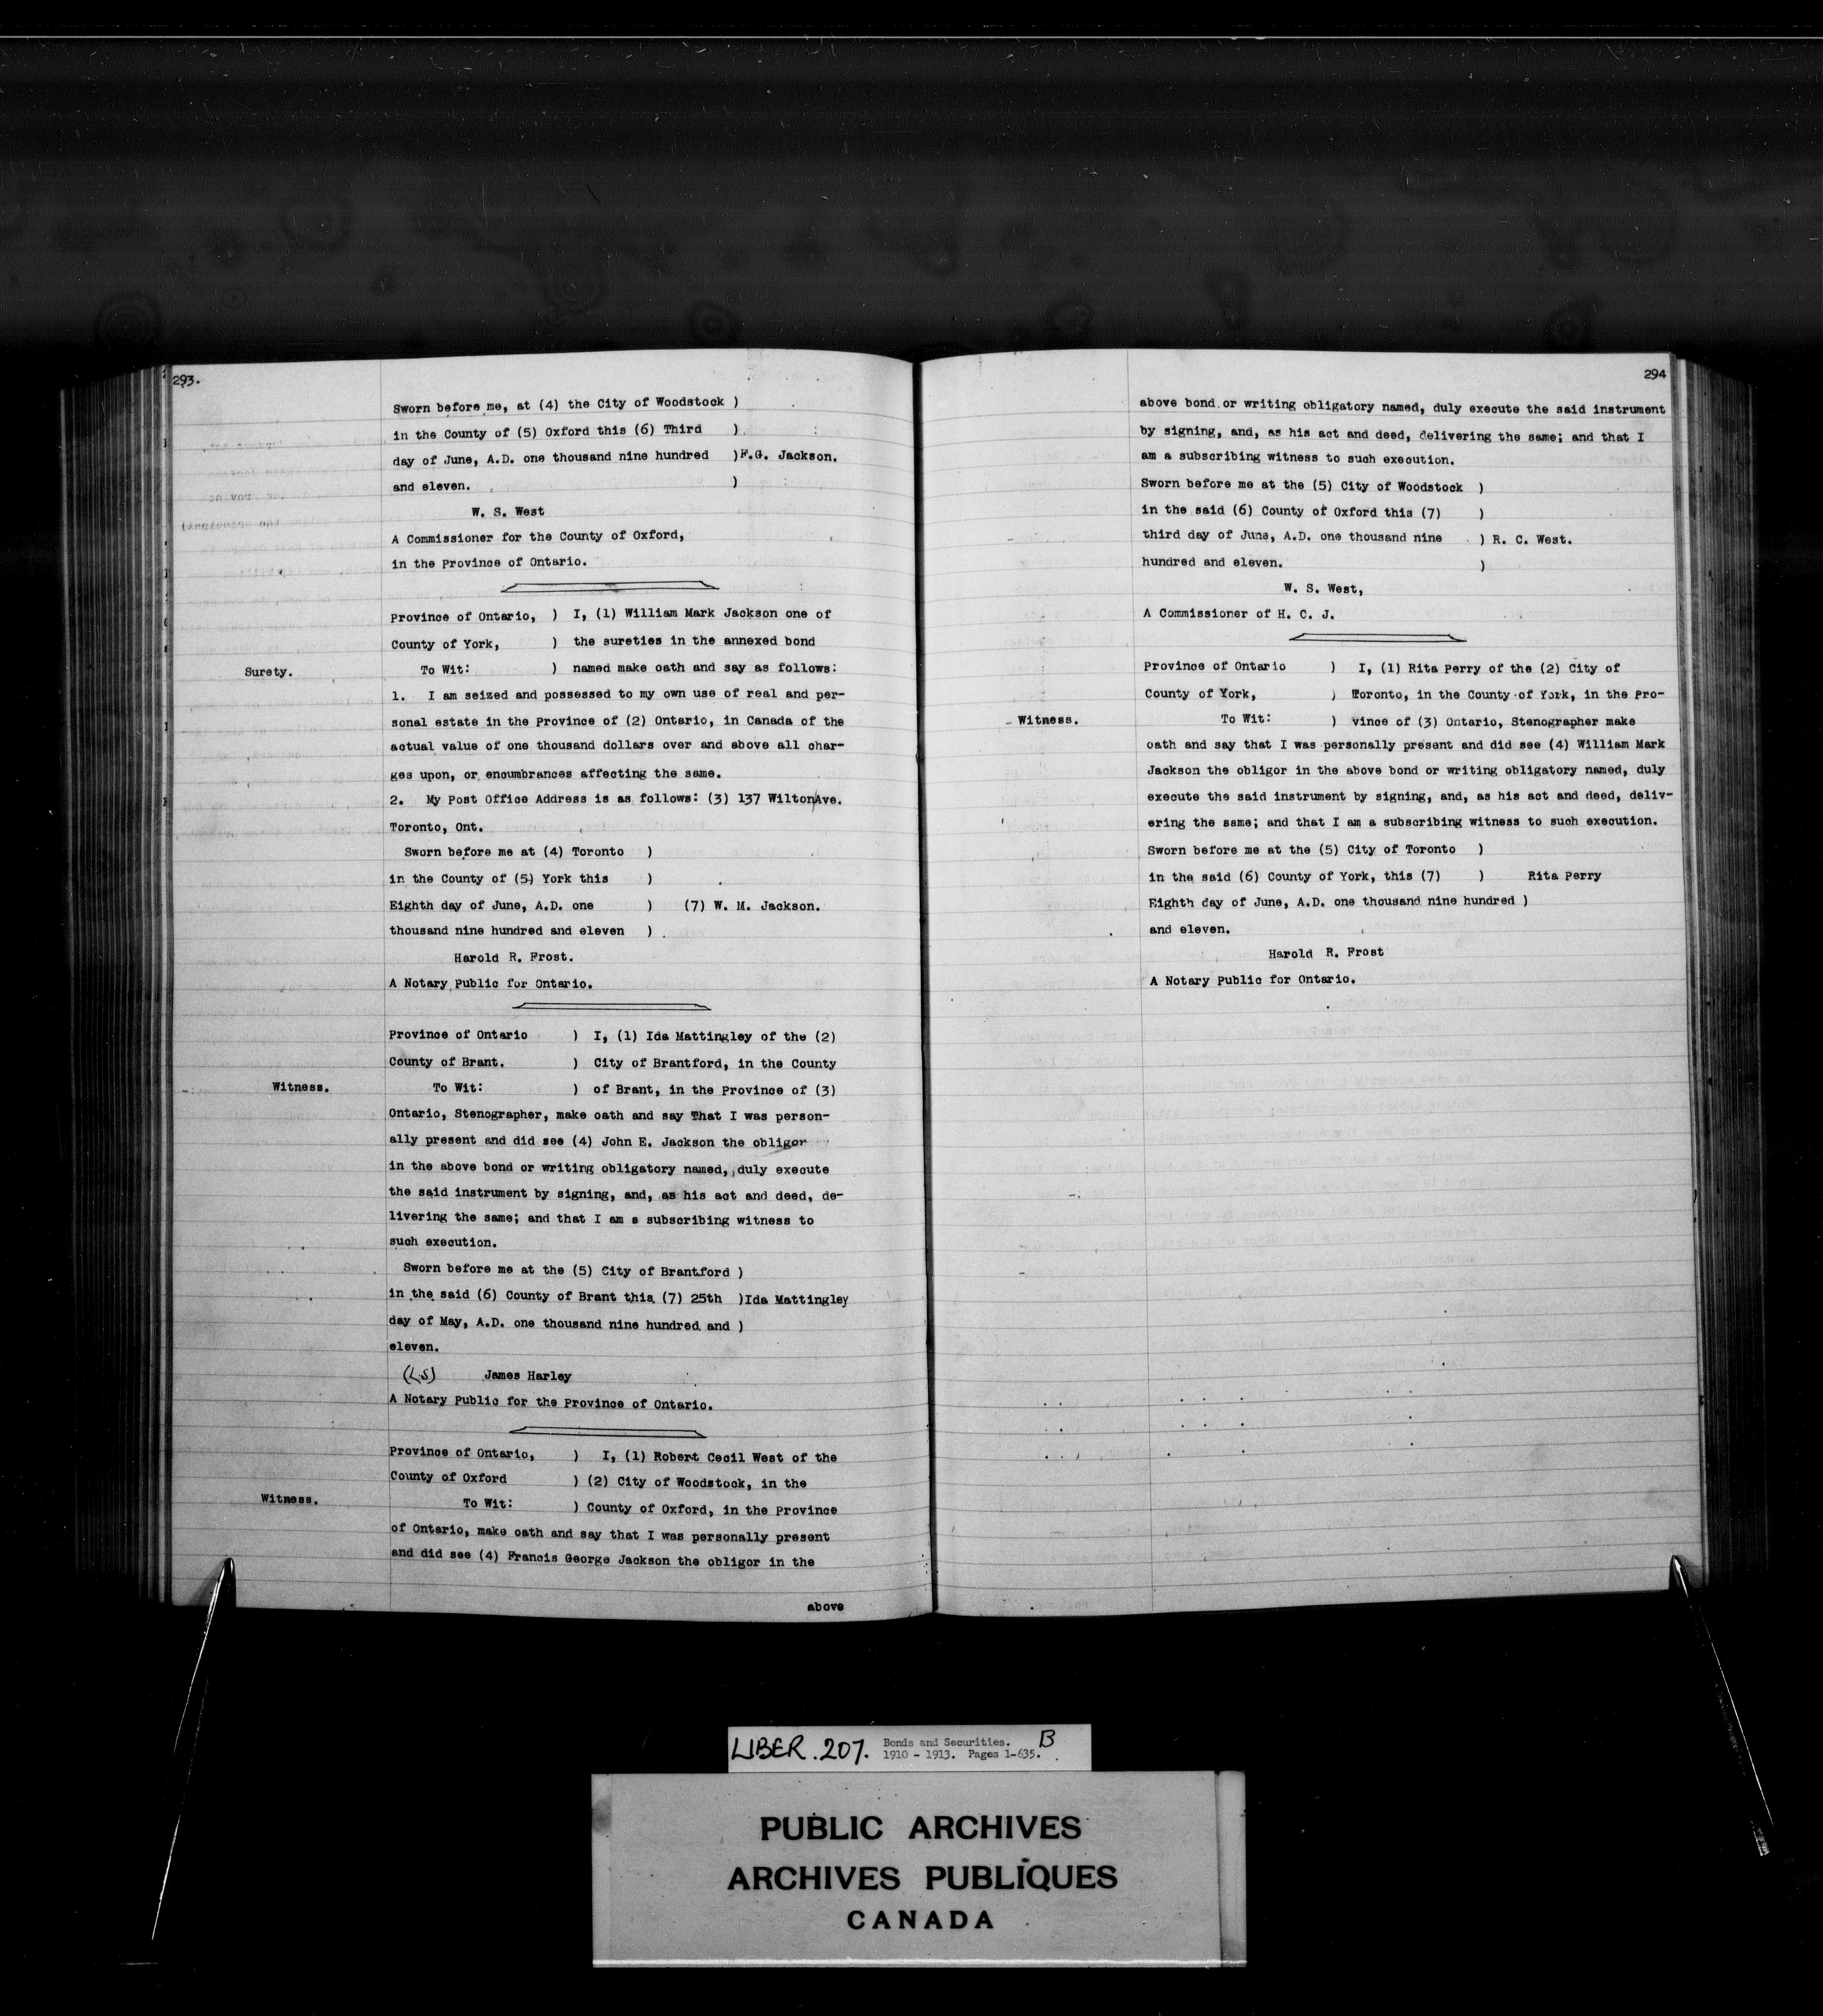 293.
Sworn before me, at (4) the City of Woodstock )
in the County of (5) Oxford this (6) Third )
day of June, A.D. one thousand nine hundred )F.G. Jackson.
and eleven. )
W. S. West
A Commissioner for the County of Oxford,
in the Province of Ontario.
Province of Ontario, ) I, (1) William Mark Jackson one of
County of York, ) the sureties in the annexed bond
Surety. To Wit: ) named make oath and say as follows:
1. I am seized and possessed to my own use of real and per-
sonal estate in the Province of (2) Ontario, in Canada of the
actual value of one thousand dollars over and above all char-
ges upon, or encumbrances affecting the same.
2. My Post Office Address is as follows: (3) 137 Wilton/Ave.
Toronto, Ont.
Sworn before me at (4) Toronto )
in the County of (5) York this )
Eighth day of June, A.D. one ) (7) W. M. Jackson.
thousand nine hundred and eleven ) .
Harold R. Frost.
A Notary Public for Ontario.
Province of Ontario ) I, (1) Ida Mattingley of the (2)
County of Brant. ) City of Brantford, in the County
Witness. To Wit: ) of Brant, in the Province of (3)
Ontario, Stenographer, make oath and say That I was person-
ally present and did see (4) John E. Jackson the obligor
in the above bond or writing obligatory named, duly execute
the said instrument by signing, and, as his act and deed, de-
livering the same; and that I am a subscribing witness to
such execution.
Sworn before me at the (5) City of Brantford )
in the said (6) County of Brant this (7) 25th )Ida Mattingley
day of May, A.D. one thousand nine hundred and )
eleven.
(L.S) James Harley
A Notary Public for the Province of Ontario.
Province of Ontario, ) I, (1) Robert Cecil West of the
County of Oxford ) (2) City of Woodstock, in the
Witness. To Wit: ) County of Oxford, in the Province
of Ontario, make oath and say that I was personally present
and did see (4) Francis George Jackson the obligor in the
above
294
above bond or writing obligatory named, duly execute the said instrument
by signing, and, as his act and deed, delivering the same; and that I
am a subscribing witness to such execution.
Sworn before me at the (5) City of Woodstock )
in the said (6) County of Oxford this (7) )
third day of June, A.D. one thousand nine ) R. C. West.
hundred and eleven. )
W. S. West,
A Commissioner of H. C. J.
Province of Ontario ) I, (1) Rita Perry of the (2) City of
County of York, ) Toronto, in the County of York, in the Pro-
Witness. To Wit: ) vince of (3) Ontario, Stenographer make
oath and say that I was personally present and did see (4) William Mark
Jackson the obligor in the above bond or writing obligatory named, duly
execute the said instrument by signing, and, as his act and deed, deliv-
ering the same; and that I am a subscribing witness to such execution.
Sworn before me at the (5) City of Toronto )
in the said (6) County of York, this (7) ) Rita Perry
Eighth day of June, A.D. one thousand nine hundred )
and eleven.
Harold R. Frost
A Notary Public for Ontario.
LIBER. 207. Bonds and Securities. B
1910 - 1913. Pages 1-635.
PUBLIC ARCHIVES
ARCHIVES PUBLIQUES
CANADA